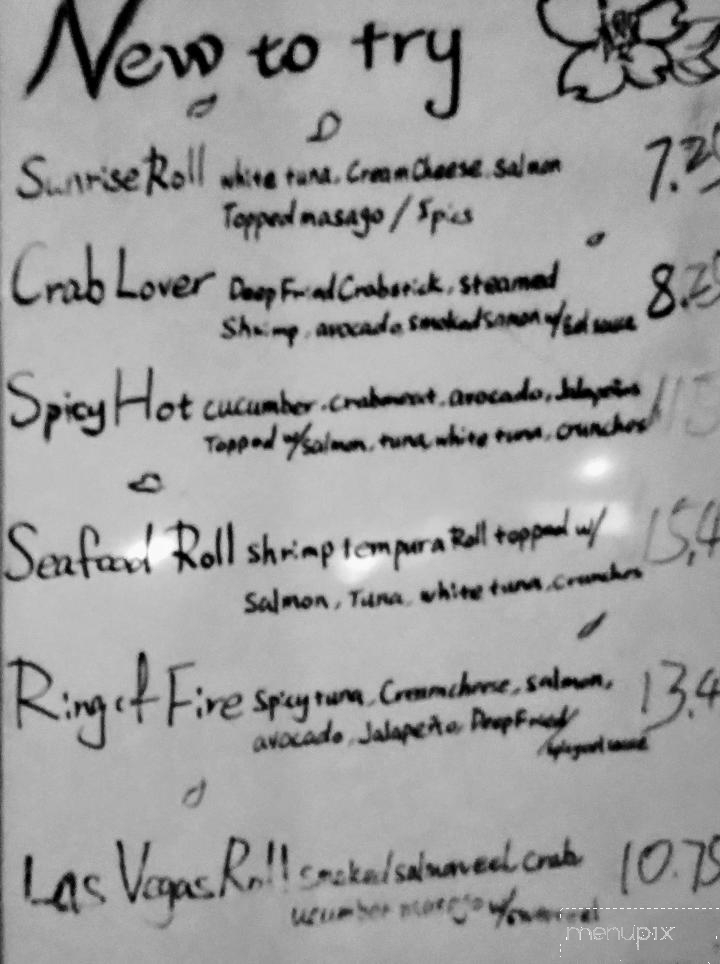 New to try
Sunrise Roll white tuna, Cream Cheese, Salmon 7.25
Topped masago / Spics
Crab Lover Deep Fried Crabstick, steamed 8.25
Shrimp, avocado, smoked samon w/ Eel sauce
Spicy Hot cucumber, crabmeat, avocado, Jalapeños
Topped w/ salmon, tuna, white tuna, crunches
Seafood Roll shrimp tempura Roll topped w/ 15.4
Salmon, Tuna, white tuna, crunches
Ring of Fire Spicy tuna, Creamcheese, salmon, 13.4
avocado, Jalapeño, Deep Fried/
sauce
Las Vegas Roll smoked salmon eel crab 10.75
ucumber w/
menupix